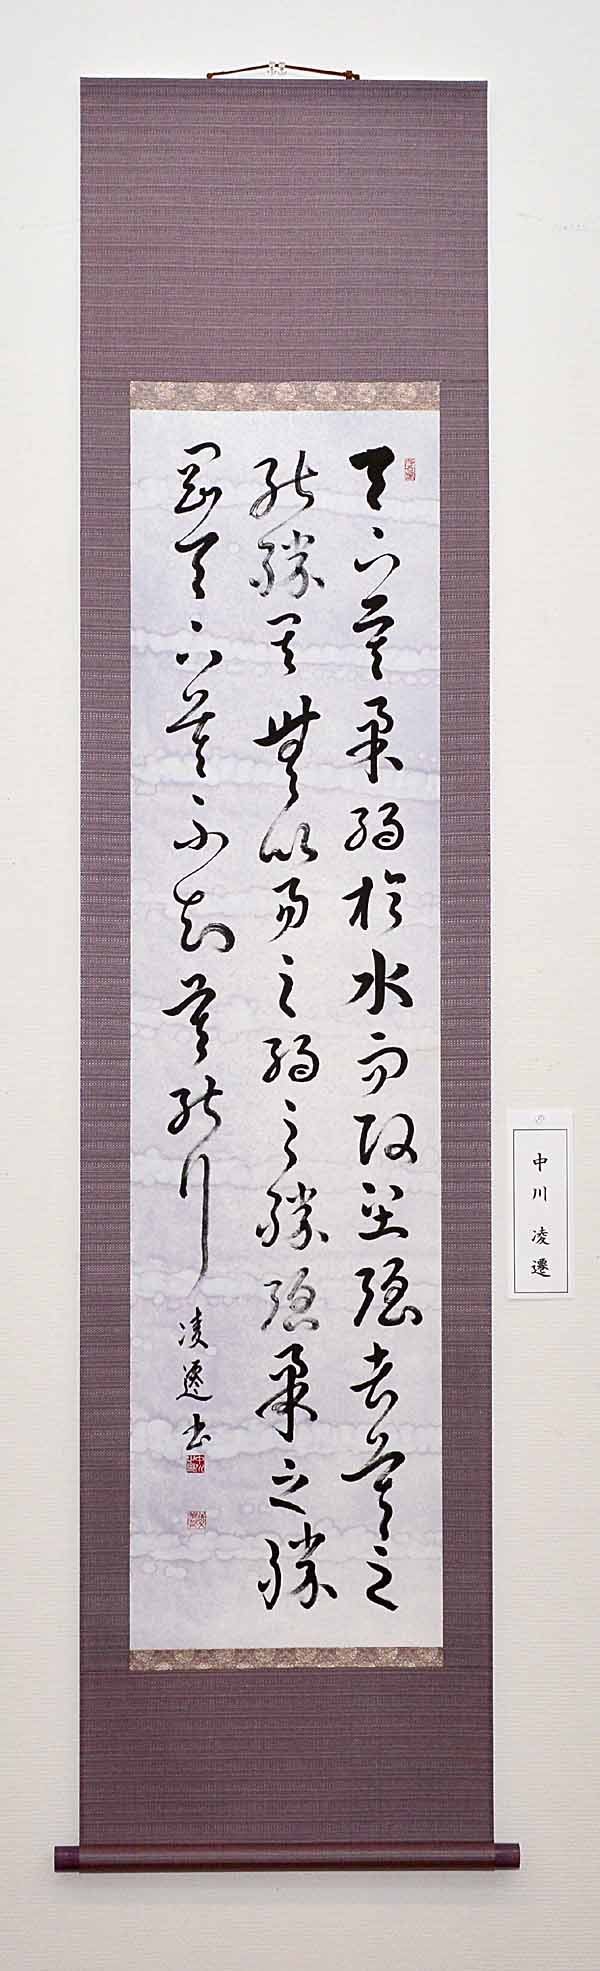 天下莫柔弱於水而攻堅強者莫之
能勝其無以易之弱之勝強柔之勝
剛天下莫不知莫能行
凌遷書
中川凌遷